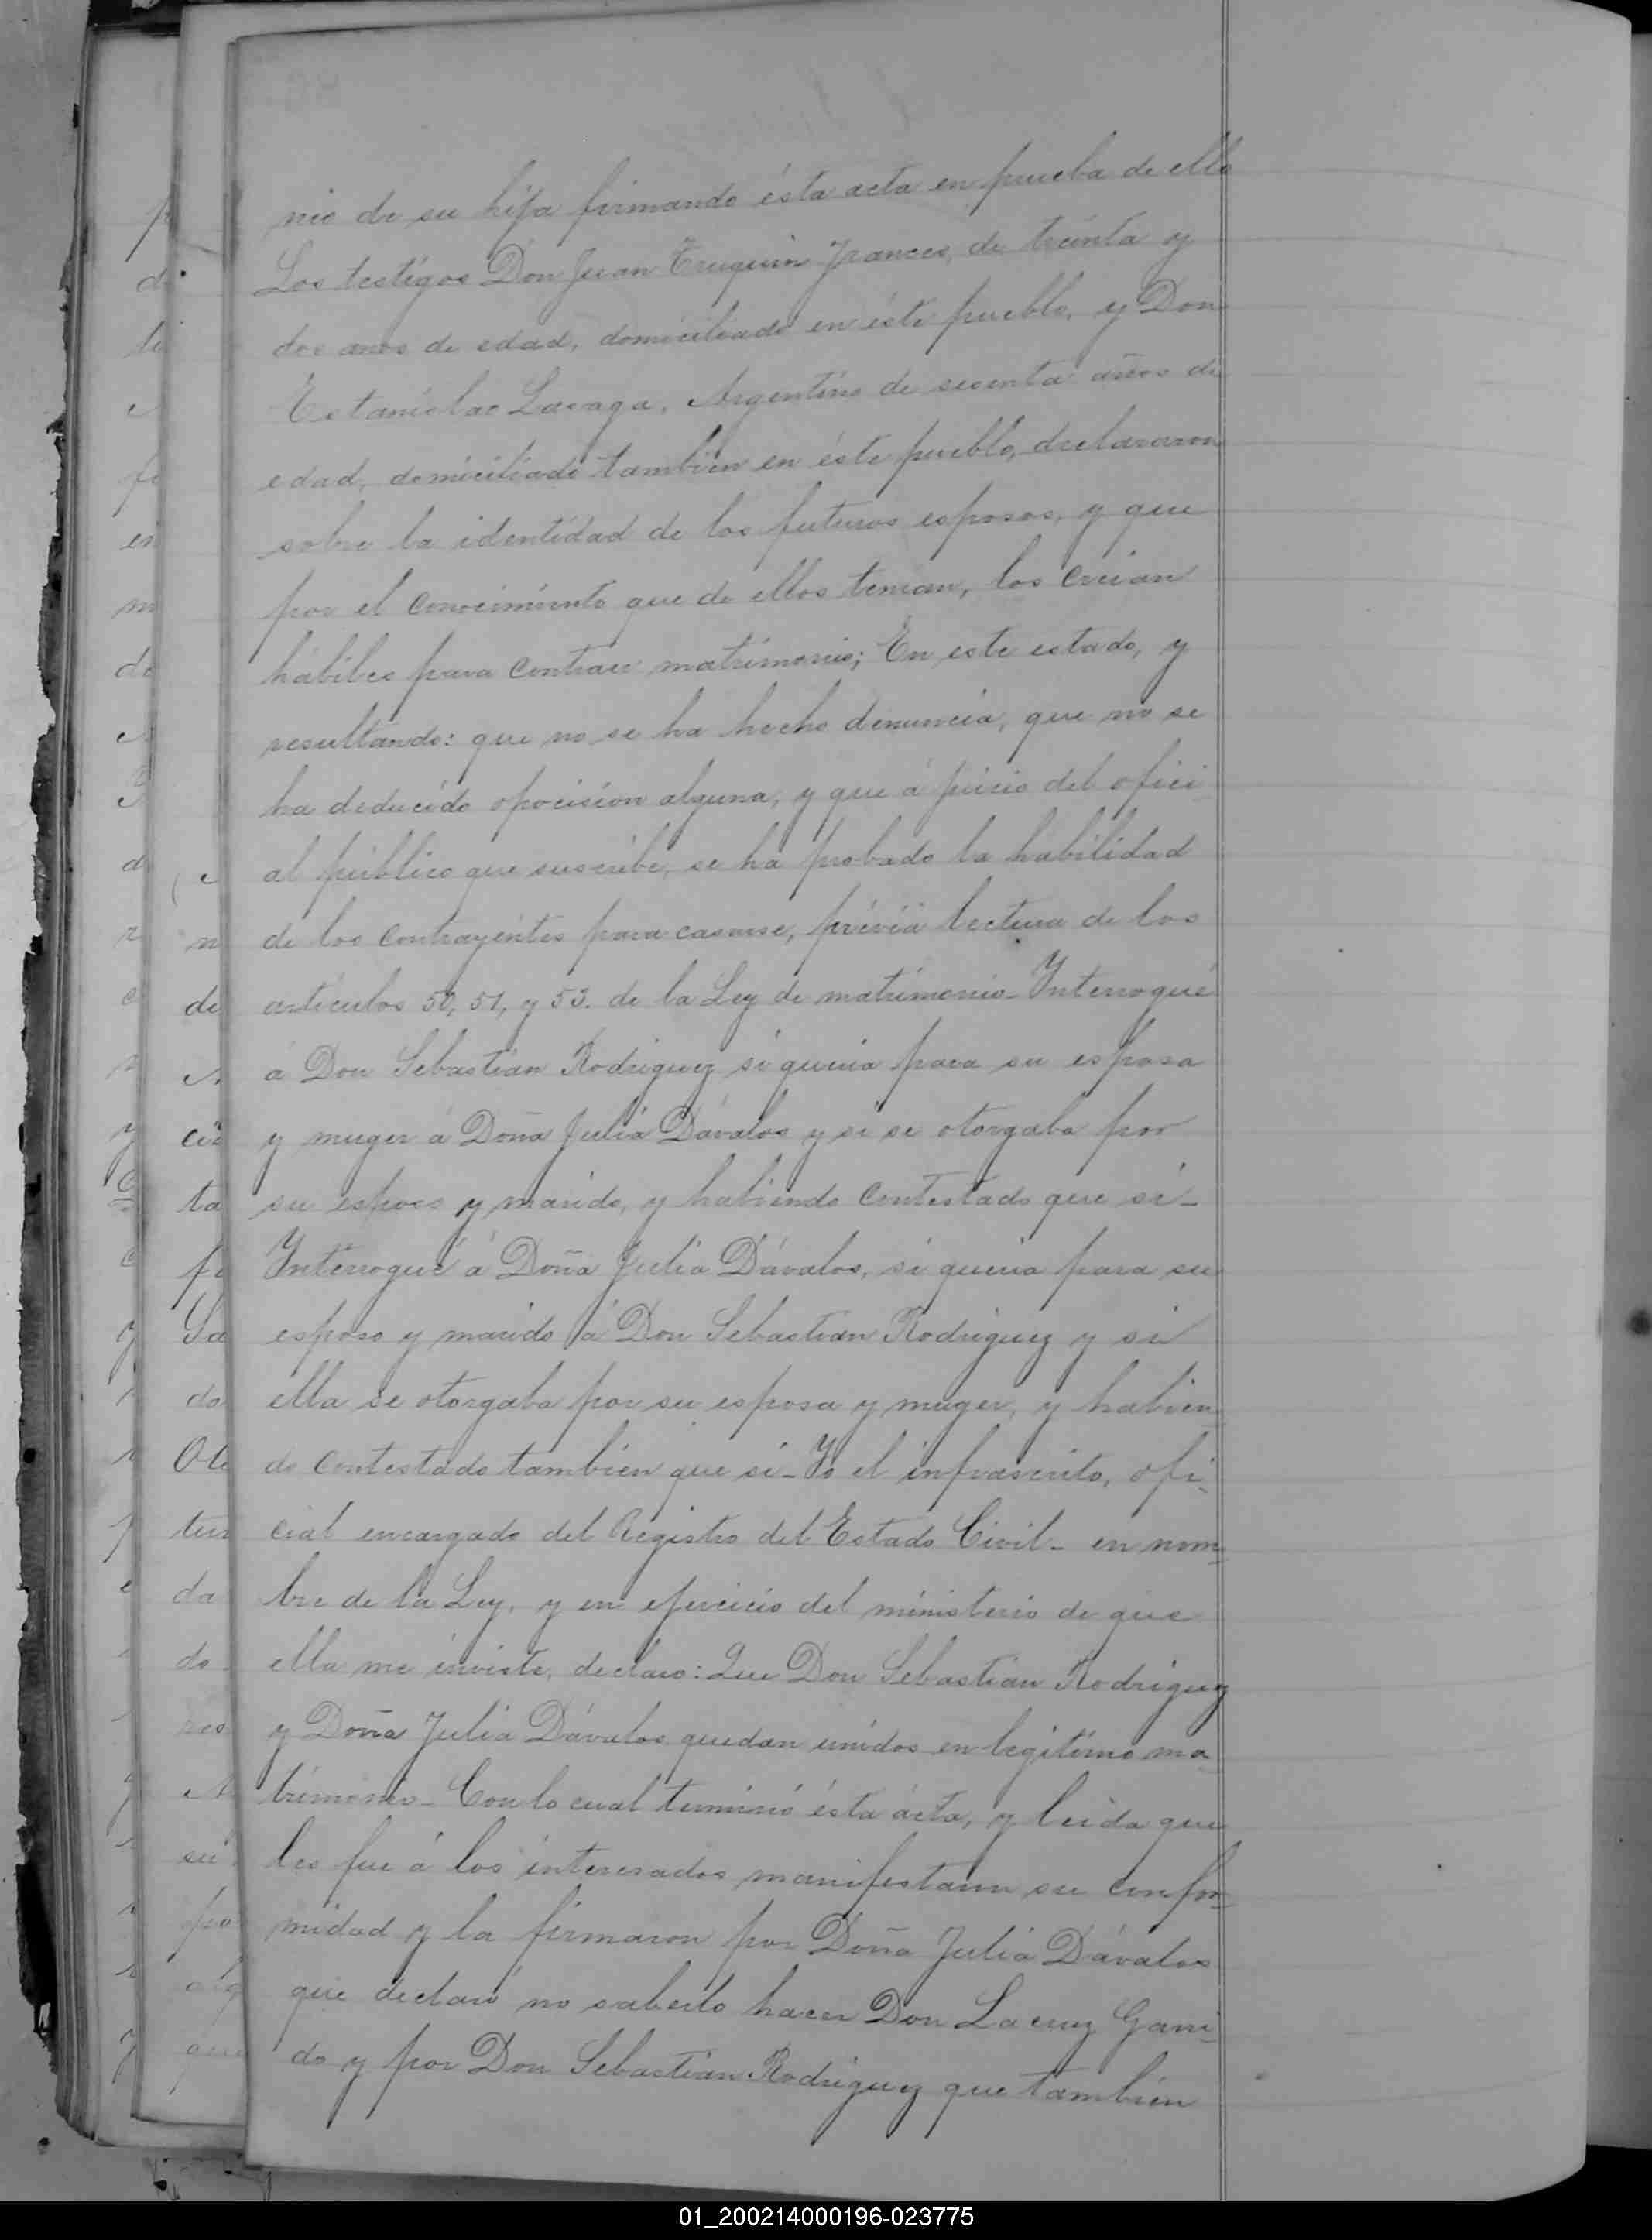 nio de su hija firmando ésta acta en prueba de ello
Los testigos Don Juan Truquin Frances, de treinta y
dos anos de edad, domiciliado en éste pueblo, y Don
Estanislao Lavaga, Argentino de sesenta años de
edad, domiciliado tambien en éste pueblo, declararon
sobre la identidad de los futuros esposos, y que
por el conocimiento que de ellos tenian, los creian
hábiles para contraer matrimonio; En este estado, y
resultando: que no se ha hecho denuncia, que no se
ha deducido opocision alguna, y que á juicio del ofici
al público que suscribe, se ha probado la habilidad
de los contrayentes para casarse, prévia lectura de los
articulos 50, 51, y 53. de la Ley de matrimonio_ Interrogué
á Don Sebastian Rodriguez si queria para su esposa
y muger á Doña Julia Dávalos y si se otorgaba por
su esposo y marido, y habiendo contestado que si_
Interrogué á Doña Julia Dávalos, si queria para su
esposo y marido á Don Sebastian Rodriguez y si
ella se otorgaba por su esposa y muger, y habien_
do contestado tambien que si_ Yo el infrascrito, ofi_
cial encargado del Registro del Estado Civil_ en nom_
bre de la Ley, y en ejercicio del ministerio de que
ella me inviste, declaro: Que Don Sebastian Rodriguez
y Doña Julia Dávalos quedan unidos en legitimo ma_
trimonio_ Con lo cual terminó ésta ácta, y leida que
les fue á los interesados manifestaron su confor_
midad y la firmaron por Doña Julia Dávalos
que declaró no saberlo hacer Don Lacruz Garri_
do y por Don Sebastian Rodriguez que tambien
01_200214000196-023775